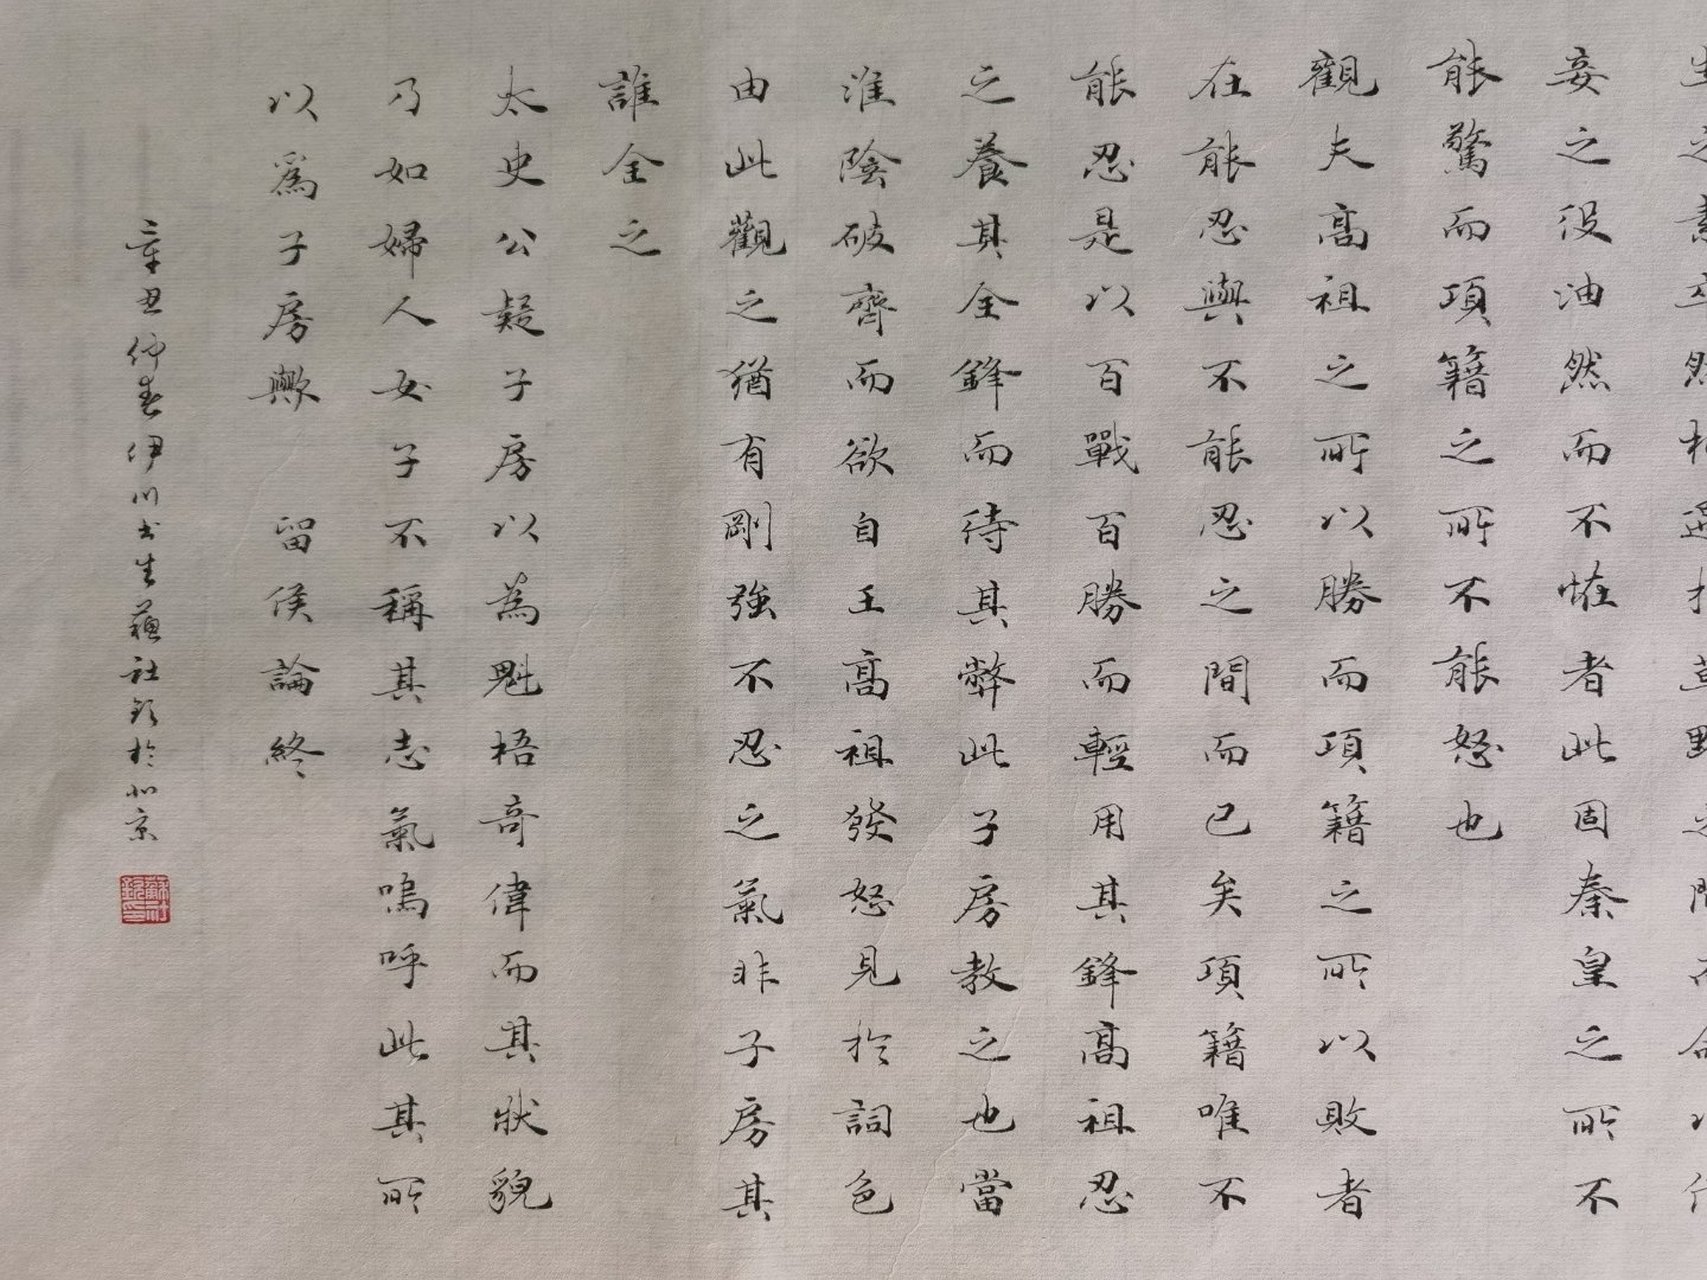 妾之役油然而不恠者此固秦皇之所不
能驚而項籍之所不能怒也
觀夫高祖之所以勝而項籍之所以敗者
在能忍與不能忍之間而已矣項籍唯不
能忍是以百戰百勝而輕用其鋒高祖忍
之養其全鋒而待其弊此子房教之也當
淮陰破齊而欲自王高祖發怒見於詞色
由此觀之猶有剛強不忍之氣非子房其
誰全之
太史公疑子房以為魁梧奇偉而其狀貌
乃如婦人女子不稱其志氣嗚呼此其所
以爲子房歟 留侯論終
辛丑仲春伊川书生蘇社欽於北京